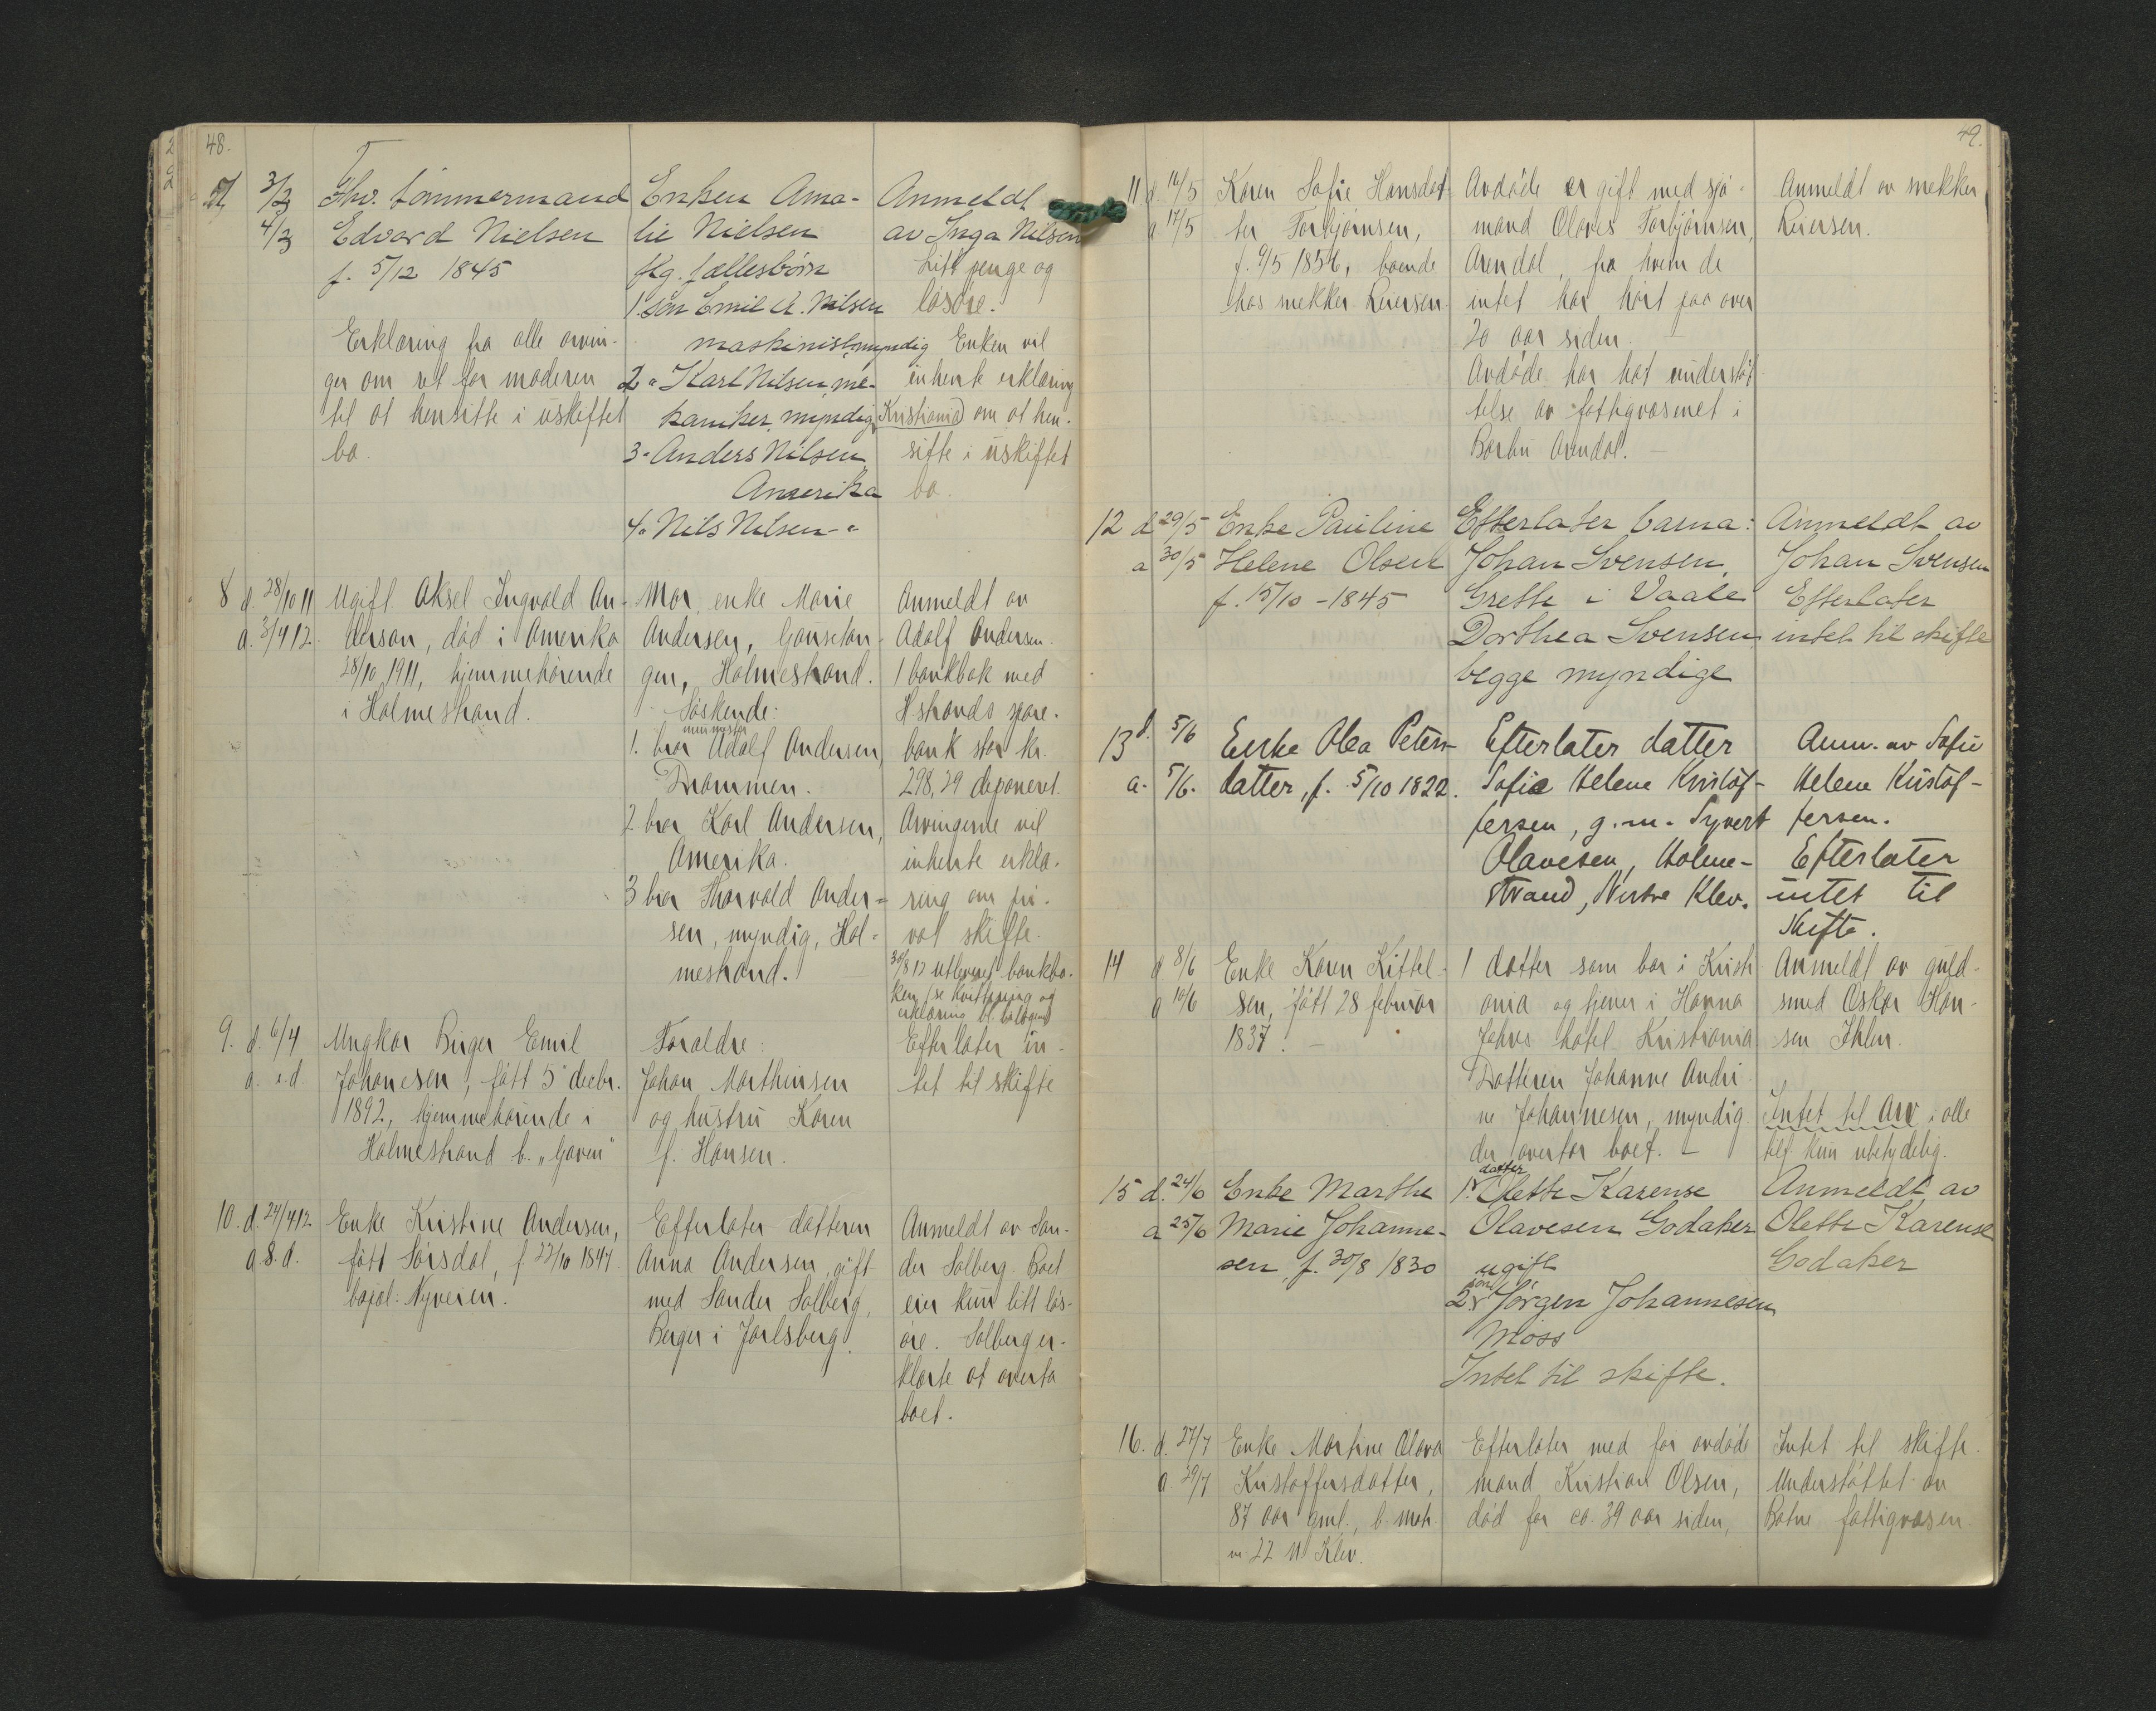 48.
7 3/3 Fhv. tømmermand
4/3 Edvard Nielsen
f. 5/12 1845
Erklæring fra alle arvin-
ger om ret for moderen
til at hensitte i uskiftet
bo.
Enken Ama-
lie Nielsen
flg. fællesbørn
1. søn Emil A. Nilsen
maskinist, myndig
2 " Karl Nilsen, me-
kaniker, myndig, Kristiania
3 " Anders Nilsen
Amerika
4 " Nils Nilsen - "
Anmeldt
av Inga Nilsen
Litt penge og
løsøre.
Enken vil
inhente erklæring
om at hen-
sitte i uskiftet
bo.
8 d. 28/10 11 Ugift Aksel Ingvald An-
a. 3/4 12. derson, død i Amerika
28/10 1911, hjemmehørende
i Holmestrand.
Mor, enke Marie
Andersen, Gausetan-
gen, Holmestrand.
Søskende:
1. bror Adolf Andersen,
Drammen.
2 bror Karl Andersen,
Amerika.
3 bror Thorvald Ander-
sen, myndig, Hol-
mestrand.
Anmeldt av
Adolf Andersen.
1 bankbok med
H.strands spare-
bank stor kr.
298,29 deponeret.
Arvingerne vil
inhente erklæ-
ring om pri-
vat skifte.
30/8 12 utleveret bankbo-
ken (se kvittering og
erklæring bl. bilagene
9. d. 6/4 Ungkar Birger Emil
a. s.d. Johanesen, født 5 decbr.
1892, hjemmehørende i
Holmestrand b. "Gaven"
Forældre:
Johan Marthinsen
og hustru Karen
f. Hansen.
Efterlater in-
tet til skifte
10. d. 24/4 12 Enke Kristine Andersen,
a s. d. født Sørsdal, f. 22/10 1847
bopæl: Nyveien.
Efterlater datteren
Anna Andersen, gift
med Sander Solberg,
Berger i Jarlsberg.
Anmeldt av San-
der Solberg. Boet
eier kun litt løs-
øre. Solberg er-
klærte at overta
boet.
49.
11 d. 16/5 Karen Sofie Hansdat-
a 17/5 ter Torbjørnsen,
f. 9/5 1856, boende
hos mekker Reiersen.
Avdøde er gift med sjø-
mand Olaves Torbjørnsen,
Arendal, fra hvem de
intet har hørt paa over
20 aar siden.
Avdøde har hat understøt-
telse av fattigvæsenet i
Barbu Arendal.
Anmeldt av mekker
Reiersen.
12 d 29/5 Enke Pauline
a 30/5 Helene Olsen
f. 15/10 - 1845
Efterlater barna:
Johan Svensen,
Grette i Vaale
Dorthea Svensen
begge myndige
Anmeldt av
Johan Svensen
Efterlater
intet til skifte
13 d. 5/6 Enke Olea Peters-
a. 5/6. datter, f. 5/10 1822.
Efterlater datter
Sofie Helene Kristof-
fersen, g. m. Syvert
Olavesen, Holme-
strand, Nerdre Klev.
Anm. av Sofie
Helene Kristof-
fersen.
Efterlater
intet til
skifte.
14 d 8/6 Enke Karen Kittel-
a 10/6 sen, født 28 februar
1837.
1 datter som bor i Kristi
ania og tjener i Hanna
Jahrs hotel Kristiania
Datteren Johanne Andri-
ne Johannesen, myndig
der overtar boet.
Anmeldt av guld-
smed Oskar Han-
sen Ihlen.
Intet til arv i alle
tilf. kun ubetydelig.
15 d. 24/6 Enke Marthe
a 25/6 Marie Johanne-
sen, f. 30/8 1830
1. datter Olette Karense
Olavesen Godaker
ugift
2. søn Jørgen Johannesen
Moss
Intet til skifte.
Anmeldt av
Olette Karense
Godaker
16. d. 27/7 Enke Martine Olava
a 29/7 Kristoffersdatter,
87 aar gml., b. matr.
nr 22 N Klev.
Efterlater med før avdøde
mand Kristian Olsen,
død for ca. 39 aar siden,
Intet til skifte.
Understøttet av
Botne fattigvæsen.